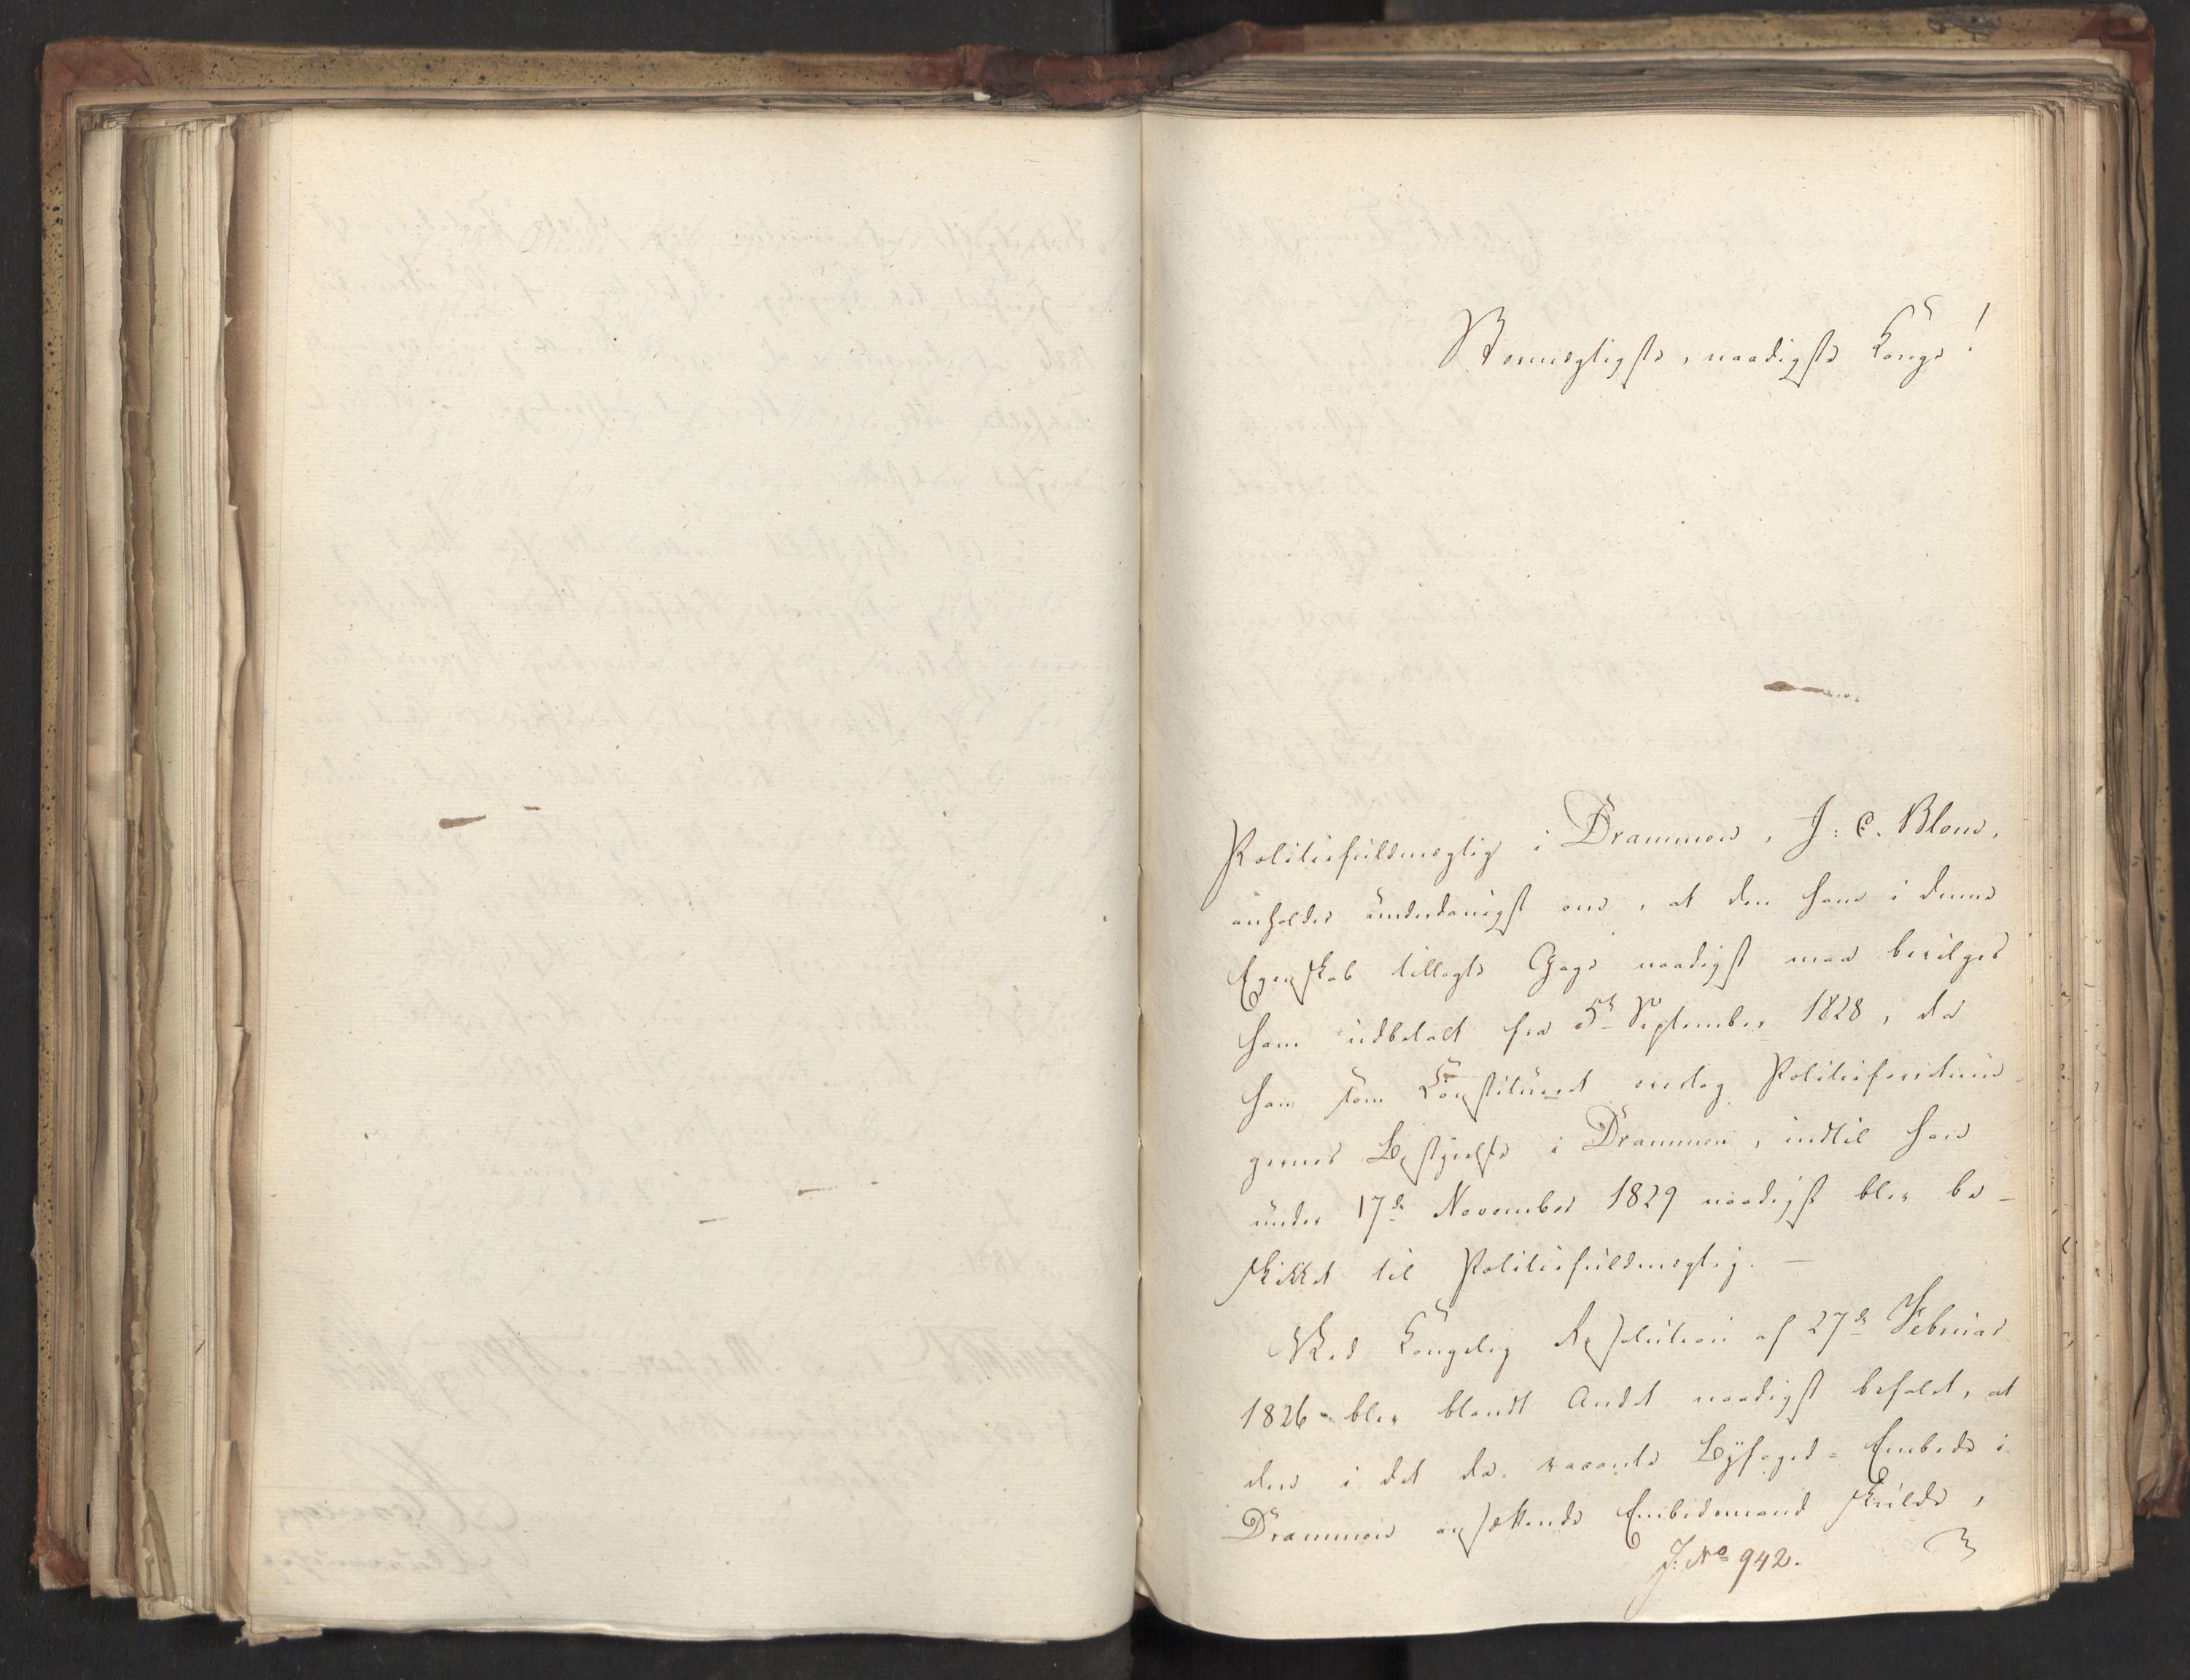 Stormægtigste, naadigste Konge!
Politiefuldmægtig i Drammen, J: C. Blom,
anholder underdanigst om, at den ham i denne
Egenskab tillagte Gage naadigst maa bevilges
ham udbetalt fra 5te September 1828, da
han som Constitueret overtog Politieforretnin-
gernes Bestyrelse i Drammen, indtil han
under 17de November 1829 naadigst blev be-
skikket til Politiefuldmægtig. —
Ved Kongelig Resolution af 27de Februar
1826 blev blandt Andet naadigst befalet, at
den i det da vacante Byfoged-Embede i
Drammen ansættende Embedsmand skulde,
J. No 942.